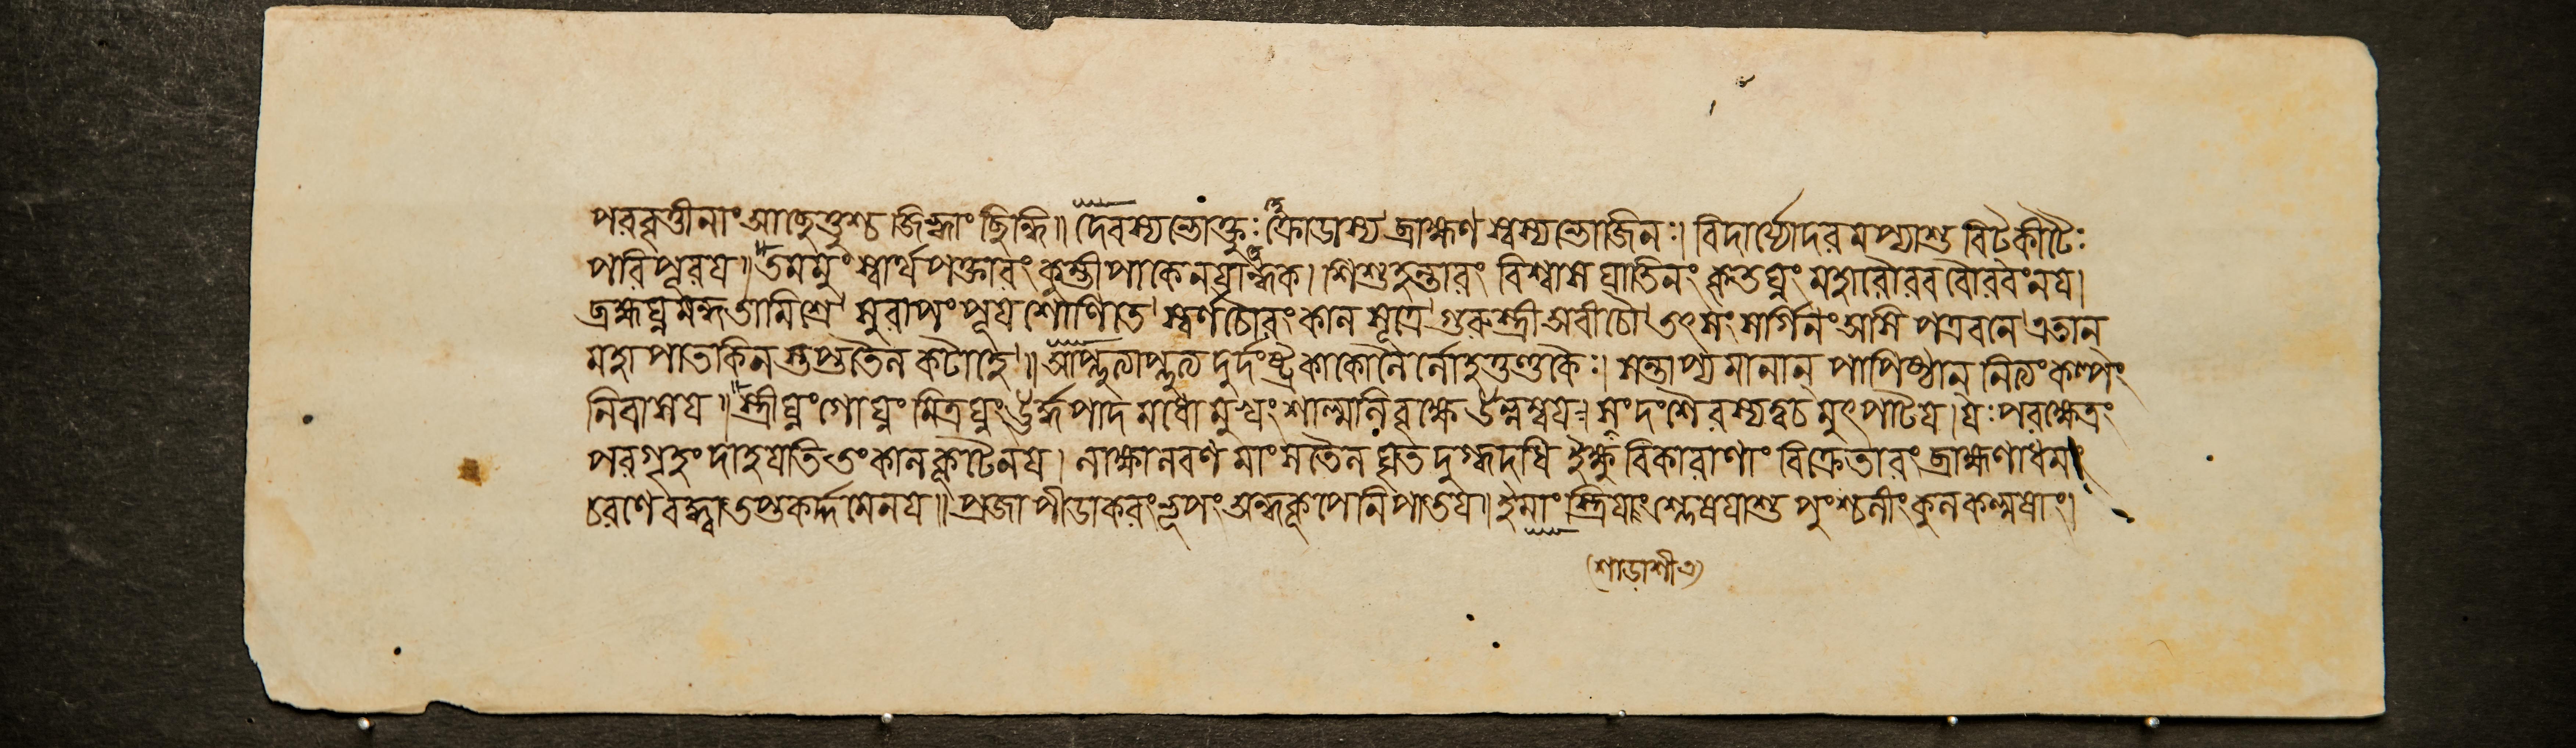 পরবৃত্তীনাং আছেত্তুশ্চ জিহ্বাং ছিন্ধি॥ দেবস্যভোক্তুঃ ক্রোডাস্য ব্রাহ্মণ স্বস্যভোজিনঃ। বিদার্য্যোদরমপ্যাশু বিটকীটৈঃ
পরিপূরয॥ তমমুং স্বার্থপক্তারং কুম্ভীপাকেনয়ান্ধক। শিশুহন্তারং বিশ্বাসঘাতিনং কৃতঘ্নং মহারৌরব রৌরবংনয।
ব্রহ্মঘ্নমন্ধতামিশ্রে সুরাপং পূযশোণিতে স্বর্ণচৌরং কালসূত্রে গুরুস্ত্রী অবীচৌ তৎসংসর্গিনং অসিপত্রবনে এতান্
মহাপাতকিন স্তপ্ততৈল কটাহে॥ আপ্লুত্যাপ্লুত্য দুর্দংষ্ট্র কাকোলৈর্লোহতুণ্ডকৈঃ। সন্তাপ্যমানান্ পাপিষ্ঠান্ নিত্যং কল্পং
নিবাসয॥ স্ত্রীঘ্নং গোঘ্নং মিত্রঘ্নং ঊর্দ্ধপাদমধোমুখং শাল্মলিবৃক্ষে উল্লম্বয। সংদংশৈরস্যত্বচমুৎপাটয। যঃপরক্ষেত্রং
পরগৃহং দাহযতি তং কালকূটেনয। লাক্ষালবণমাংসতৈল ঘৃত দুগ্ধদধি ইক্ষু বিকারাণাং বিক্রেতারং ব্রাহ্মণাধমং
চরণে বদ্ধ্বা তপ্তকর্দ্দমেনয॥ প্রজাপীডাকরংভূপং অন্ধকূপেনিপাতয॥ ইমাং স্ত্রিযাং শ্লেষযাশু পুংশ্চলীং কুলকল্মষাং।